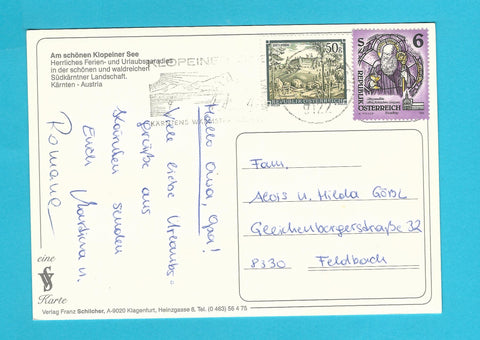 Am schönen Klopeiner See
Herrliches Ferien- und Urlaubsparadies
in der schönen und waldreichen
Südkärntner Landschaft.
Kärnten - Austria
KLOPEINER
KÄRNTENS
50g
REPUBLIK ÖSTERREICH
6
S
REPUBLIK
ÖSTERREICH
Hallo Oma, Opa!
Viele liebe Urlaubs-
grüße aus
Kärnten senden
Euch Martina u.
Romana
Fam.
Alois u. Hilda Gößl
Gleichenbergerstraße 32
8330 Feldbach
eine
VS
Karte
Verlag Franz Schilcher, A-9020 Klagenfurt, Heinzgasse 8, Tel. (0 463) 56 4 75